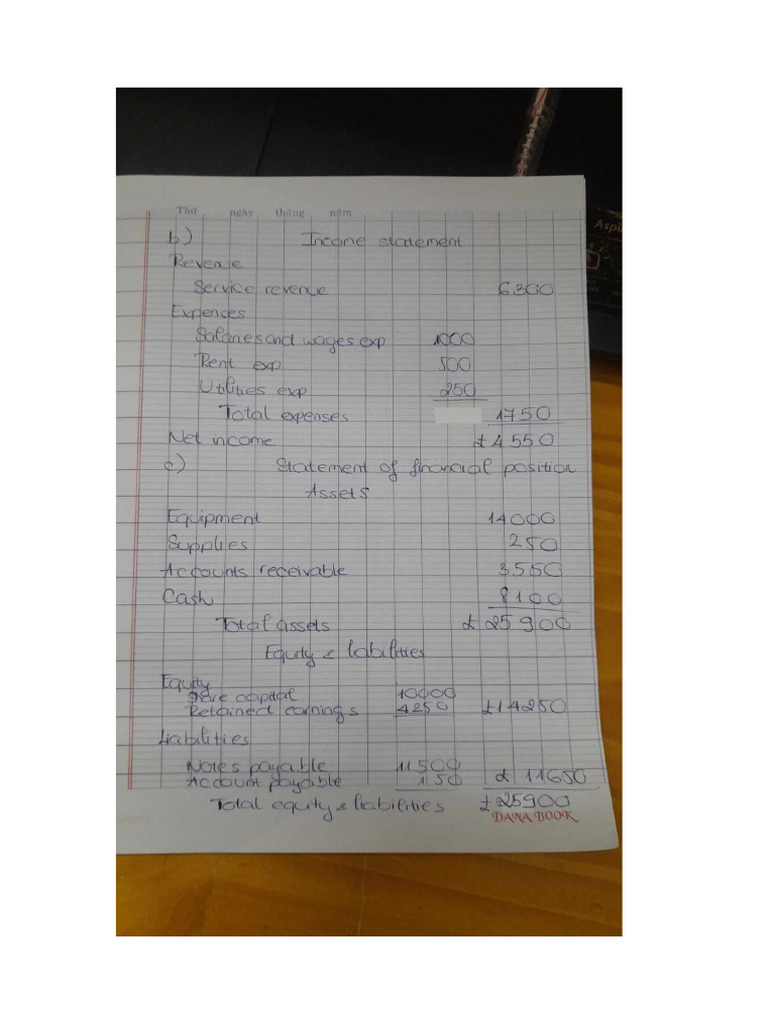 Thứ ngày tháng năm
b) Income statement
Revenue
Service revenue 6300
Expences
Salaries and wages exp 1000
Rent exp 500
Utilities exp 250
Total expenses 1750
Net income £4550
c) Statement of financial position
Assets
Equipment 14000
Supplies 250
Accounts receivable 3550
Cash 8100
Total assets £25900
Equity & liabilities
Equity
capital 10000
Retained earnings 4250 £14250
Liabilities
Notes payable 11500
Account payable 150 £11650
Total equity & liabilities £25900
DANA BOOK